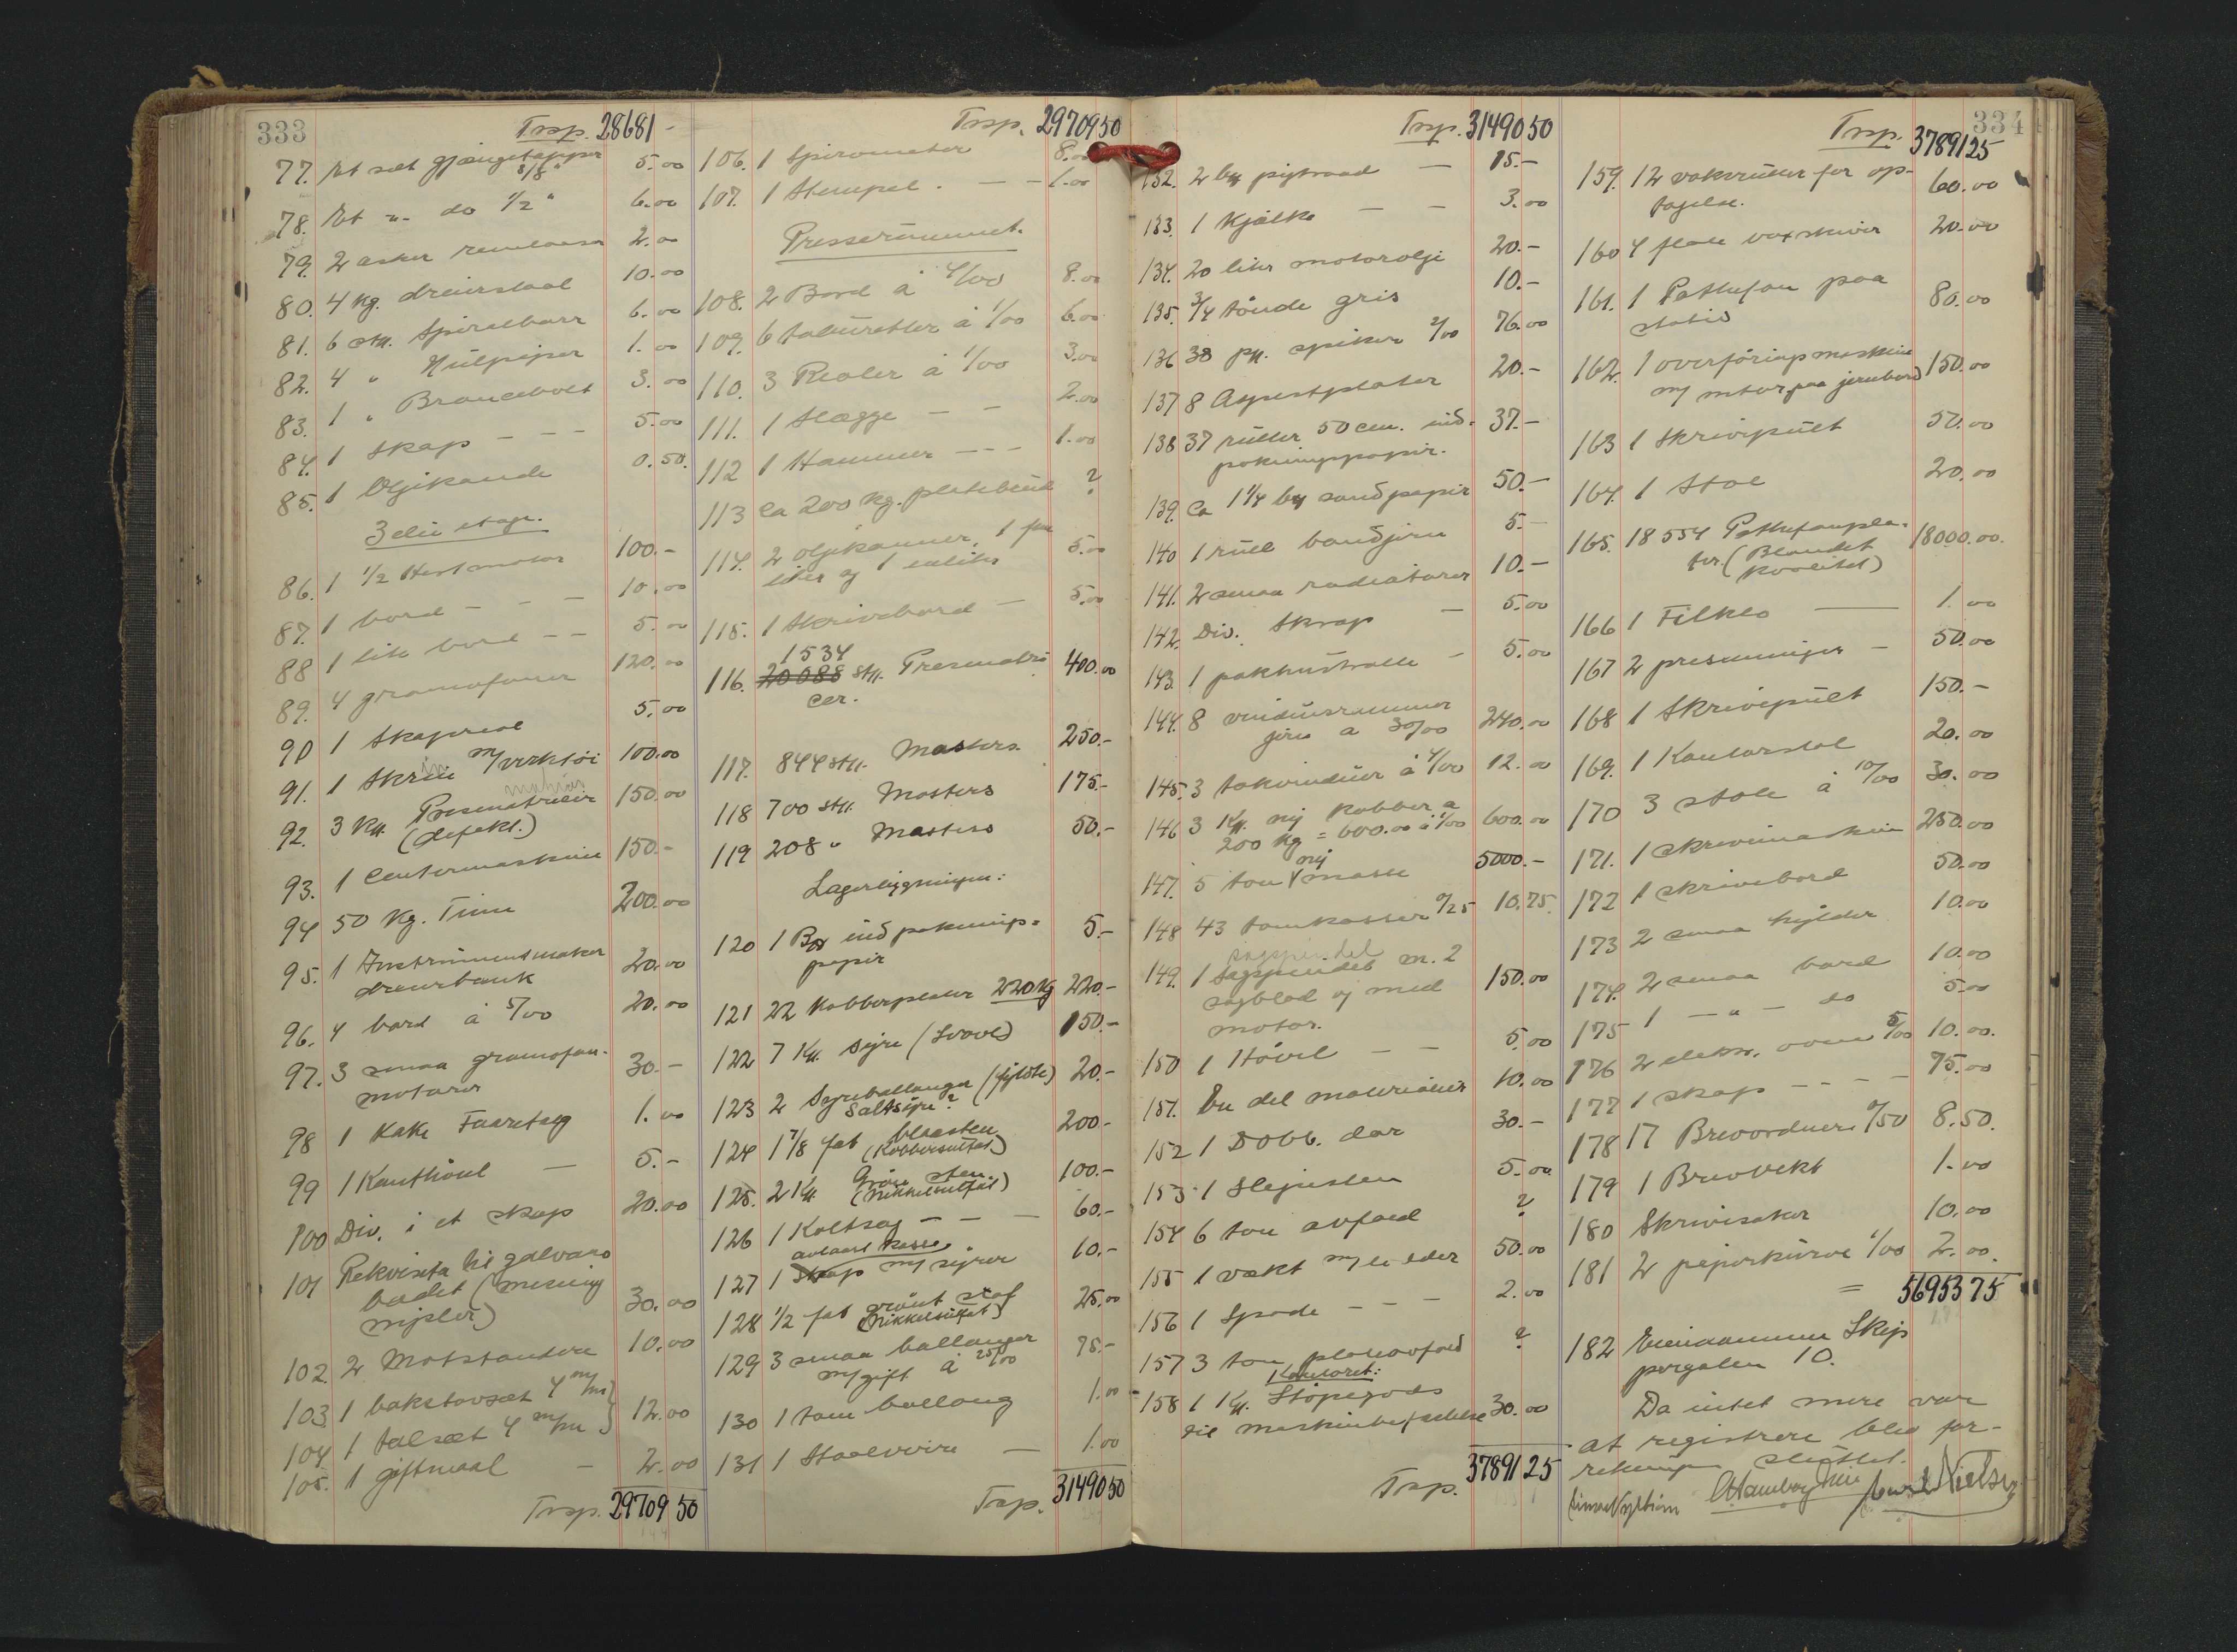 333
Trsp. 28681 -
77. Et sæt gjængetapper 5.00
5/8"
78. Et " do 1/2" 6.00
79. 2 æsker remlaaser 2.00
80. 4 kg. dreierstaal 10.00
81. 6 stk. Spiralborr 6.00
82. 4 " Hülpiper 1.00
83. 1 " Broncebolt 3.00
84. 1 Skap - - - 5.00
85. 1 Oljekande 0.50.
3die etage.
86. 1 1/2 Hest motor 100.-
87. 1 bord - - - 10.00
88 1 lite bord - - 5.00
89. 4 gramofoner 120.00
90 1 Skapreol 5.00
91. 1 Skrin m/verktøi 100.00
92. 3 Kk. Presmatricer 150.00
(defekt.)
93. 1 Centermaskine 150.-
94 50 Kg. Tinn 200.00
95. 1 Instrumentmaker 20.00
dreierbænk
96. 4 bord à 5/00 20.00
97. 3 smaa gramofon-
motorer 30.-
98 1 Kake Faaretalg 1.00
99 1 Kanthövel - 5.-
100 Div. i et skap 20.00
101 Rekvisita til galvano
badet (messing
nipler) 30.00
102. 2 Motstandere 10.00
103. 1 bokstavsæt 4 m/m
104 1 talsæt 4 m/m } 12.00
105. 1 giftmaal - 2.00
Trsp. 29709 50
Trsp. 29709 50
106. 1 Spirometer 8.00
107. 1 Stempel. - - 1.00
Presserümmet.
108. 2 Bord à 4/00 8.00
109. 6 taburetter à 1/00 6.00
110. 3 Reoler à 1/00 3.00
111. 1 Slægge - - 2.00
112 1 Hammer - - - 1.00
113 Ca 200 kg. platebünd ?
114. 2 oljekanner, 1 fem 5.00
liter og 1 enliter
115. 1 Skrivebord - 5.00
1534
116. 20088 stk. Presmatri 400.00
cer.
117. 844 stk. Masters 250.-
118 700 stk. Masters 175.-
119 208 " Masters 50.-
Lagerbygningen:
120 1 Bx indpaknings= 5.-
papir
121 22 Kobberplater 220 Kg 220.-
122 7 Kk. syre (svovl) 150.-
123 2 Syreballonger (fyldte) 20.-
Saltsyre?
124 1 7/8 fat blaasten 200-
(Kobbersulfat)
125. 2 Kk Grön sten 100.-
(Nikkelsulfat)
126 1 Koltsag - - - 60.-
avlaast kasse
127 1 Skap m/ syrer 10.-
128 1/2 fat grönt stof 25.00
(Nikkelsulfat)
129 3 smaa ballonger 75.-
m/gift à 25/00
130 1 tom ballong 1.00
131 1 Staalvire - 1.00
Trsp. 31490 50
334
Trsp. 31490 50
132. 2 bx pigtraad - 15.-
133. 1 Kjälke - - 3.00
134. 20 liter motorolje 20.-
135. 3/4 tönde gris 10.-
136 38 pk. spiker 2/00 76.00
137 8 Aspestplater 20.-
138 37 rüller 50 cm. ind- 37.-
pakningspapir.
139. Ca 1 1/4 bx sandpapir 50.-
140 1 rüll bandjern 5.-
141. 2 smaa radiatorer 10.-
142. Div. Skrap - 5.00
143. 1 pakhustralle - 5.00
144. 8 vindüsrammer
jern a 30/00 240.00
145. 3 takvindüer à 4/00 12.00
146 3 Kk. ny Kobber a 600.00
200 kg = 600.00 à 1/00
147. 5 ton ny masse 5000.-
148 43 tomkasser 0/25 10.75.
sagspindel
149. 1 Sagspindel m. 2
sagblad og med 150.00
motor.
150 1 Hövel - - 5.00
151. En del materialier 10.00
152 1 Dobb. dör 30.-
153. 1 Slepesten 5.00
154 6 ton avfald ?
155 1 vækt m/ lodder 50.00
156 1 Spade - - - 2.00
157 3 ton plateavfald ?
Kontoret:
158 1 Kk. Stöpegods
til maskinbefæstelse 30.00
Trsp. 37891 25
Trsp. 37891 25
159. 12 voksrüller for op- 60.00
tagelse.
160 4 flate voxskiver 20.00
161. 1 Pathefon paa 80.00
stativ
162. 1 overföringsmaskine
m/ motor paa jernbord 150.00
163 1 Skrivepült 50.00
164. 1 Stol 20.00
165. 18 554 Pathefonpla- 18000.00.
ter. (Blandet
kvalitet)
166 1 Filklo 1.00
167 2 presenninger - 50.00
168 1 Skrivepült 150.-
169. 1 Kontorstol 20.00
170 3 stole à 10/00 30.00
171. 1 skrivemaskine 250.00
172 1 skrivebord 50.00
173 2 smaa hylder 10.00
174. 2 smaa bord 10.00
175 1 - " - do 5.00
176 2 elektr. ovne 5/00 10.00.
177 1 skap - - - - 75.00
178 17 Brevordnere 0/50 8.50.
179 1 Brevvekt 1.00
180 Skrivesaker 10.00
181 2 papirkürve 1/00 2.00.
= 56953 75
182 Eiendommen Skip
pergaten 10.
Da intet mere var
at registrere blev for-
retningen slüttet.